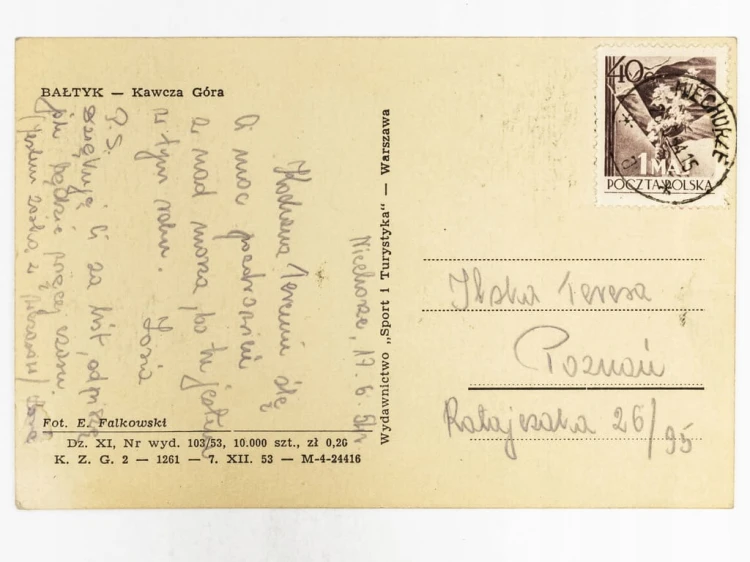 BAŁTYK — Kawcza Góra
Niechorze, 17. 6. 54 r
Kochana Tereniu ślę
Ci moc pozdrowień
z nad morza, bo tu jestem
w tym roku.
Zosia
P.S.
Dziękuję Ci za list, odpiszę
jak będzie więcej czasu.
Fot. E. Falkowski
Dz. XI, Nr wyd. 103/53, 10.000 szt., zł 0,26
K. Z. G. 2 — 1261 — 7. XII. 53 — M-4-24416
Wydawnictwo „Sport i Turystyka" — Warszawa
40
1 MAJ
POCZTA POLSKA
NIECHORZE
Ilska Teresa
Poznań
Ratajczaka 26/95